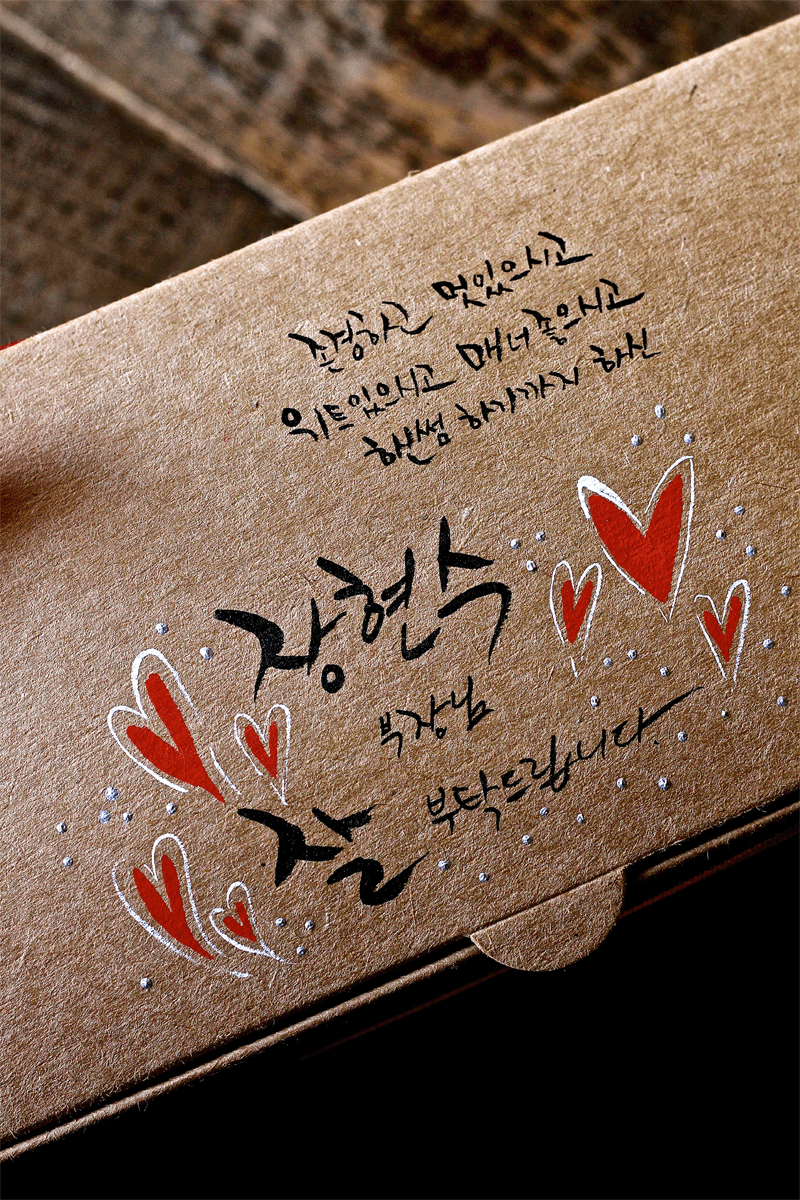 존경하고 멋있으시고
위트있으시고 매너좋으시고
핸썸 하기까지 하신
장현수
부장님
잘 부탁드립니다.